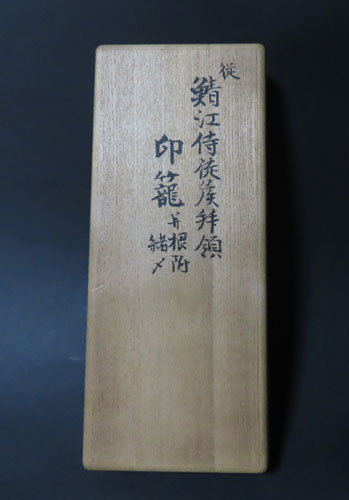 従
鯖江侍従侯拝領
印籠
并根附
緒〆